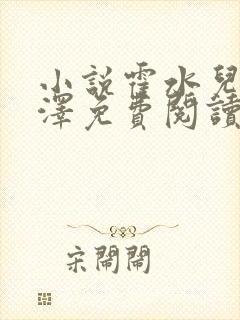 小說霍水兒
澤免費閱讀
宋鬧鬧